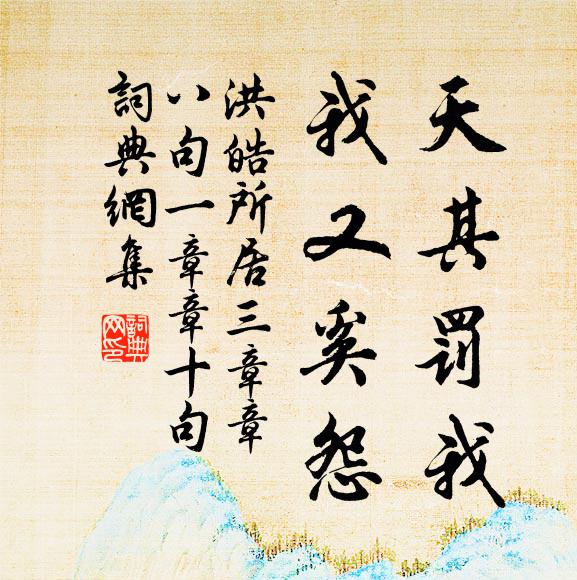 天其罰我
我又奚怨
洪皓所居三章章
八句一章章十句
詞典網集
詞典
网印